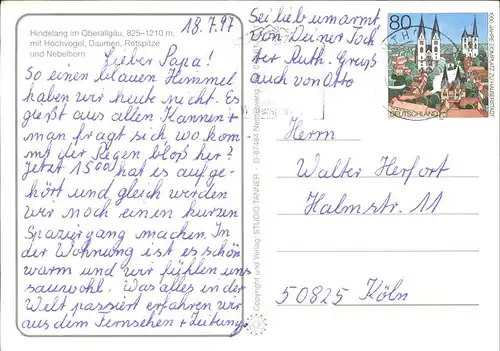 Hindelang im Oberallgäu, 825–1210 m,
mit Hochvogel, Daumen, Rotspitze
und Nebelhorn
18.7.97
Lieber Papa!
So einen blauen Himmel
haben wir heute nicht. Es
gießt aus allen Kannen +
man fragt sich, wo kom-
mt der Regen bloß her?
Jetzt 15 00 hat es aufge-
hört und gleich werden
wir noch einen kurzen
Spaziergang machen. In
der Wohnung ist es schön
warm und wir fühlen uns
sauwohl. Was alles in der
Welt passiert erfahren wir
aus dem Fernsehen + Zeitung.
Sei lieb umarmt
von Deiner Toch
ter Ruth. Gruß
auch von Otto
© Copyright und Verlag STUDIO TANNER
80
DEUTSCHLAND
Herrn
Walter Herfort
Halmstr. 11
50825 Köln